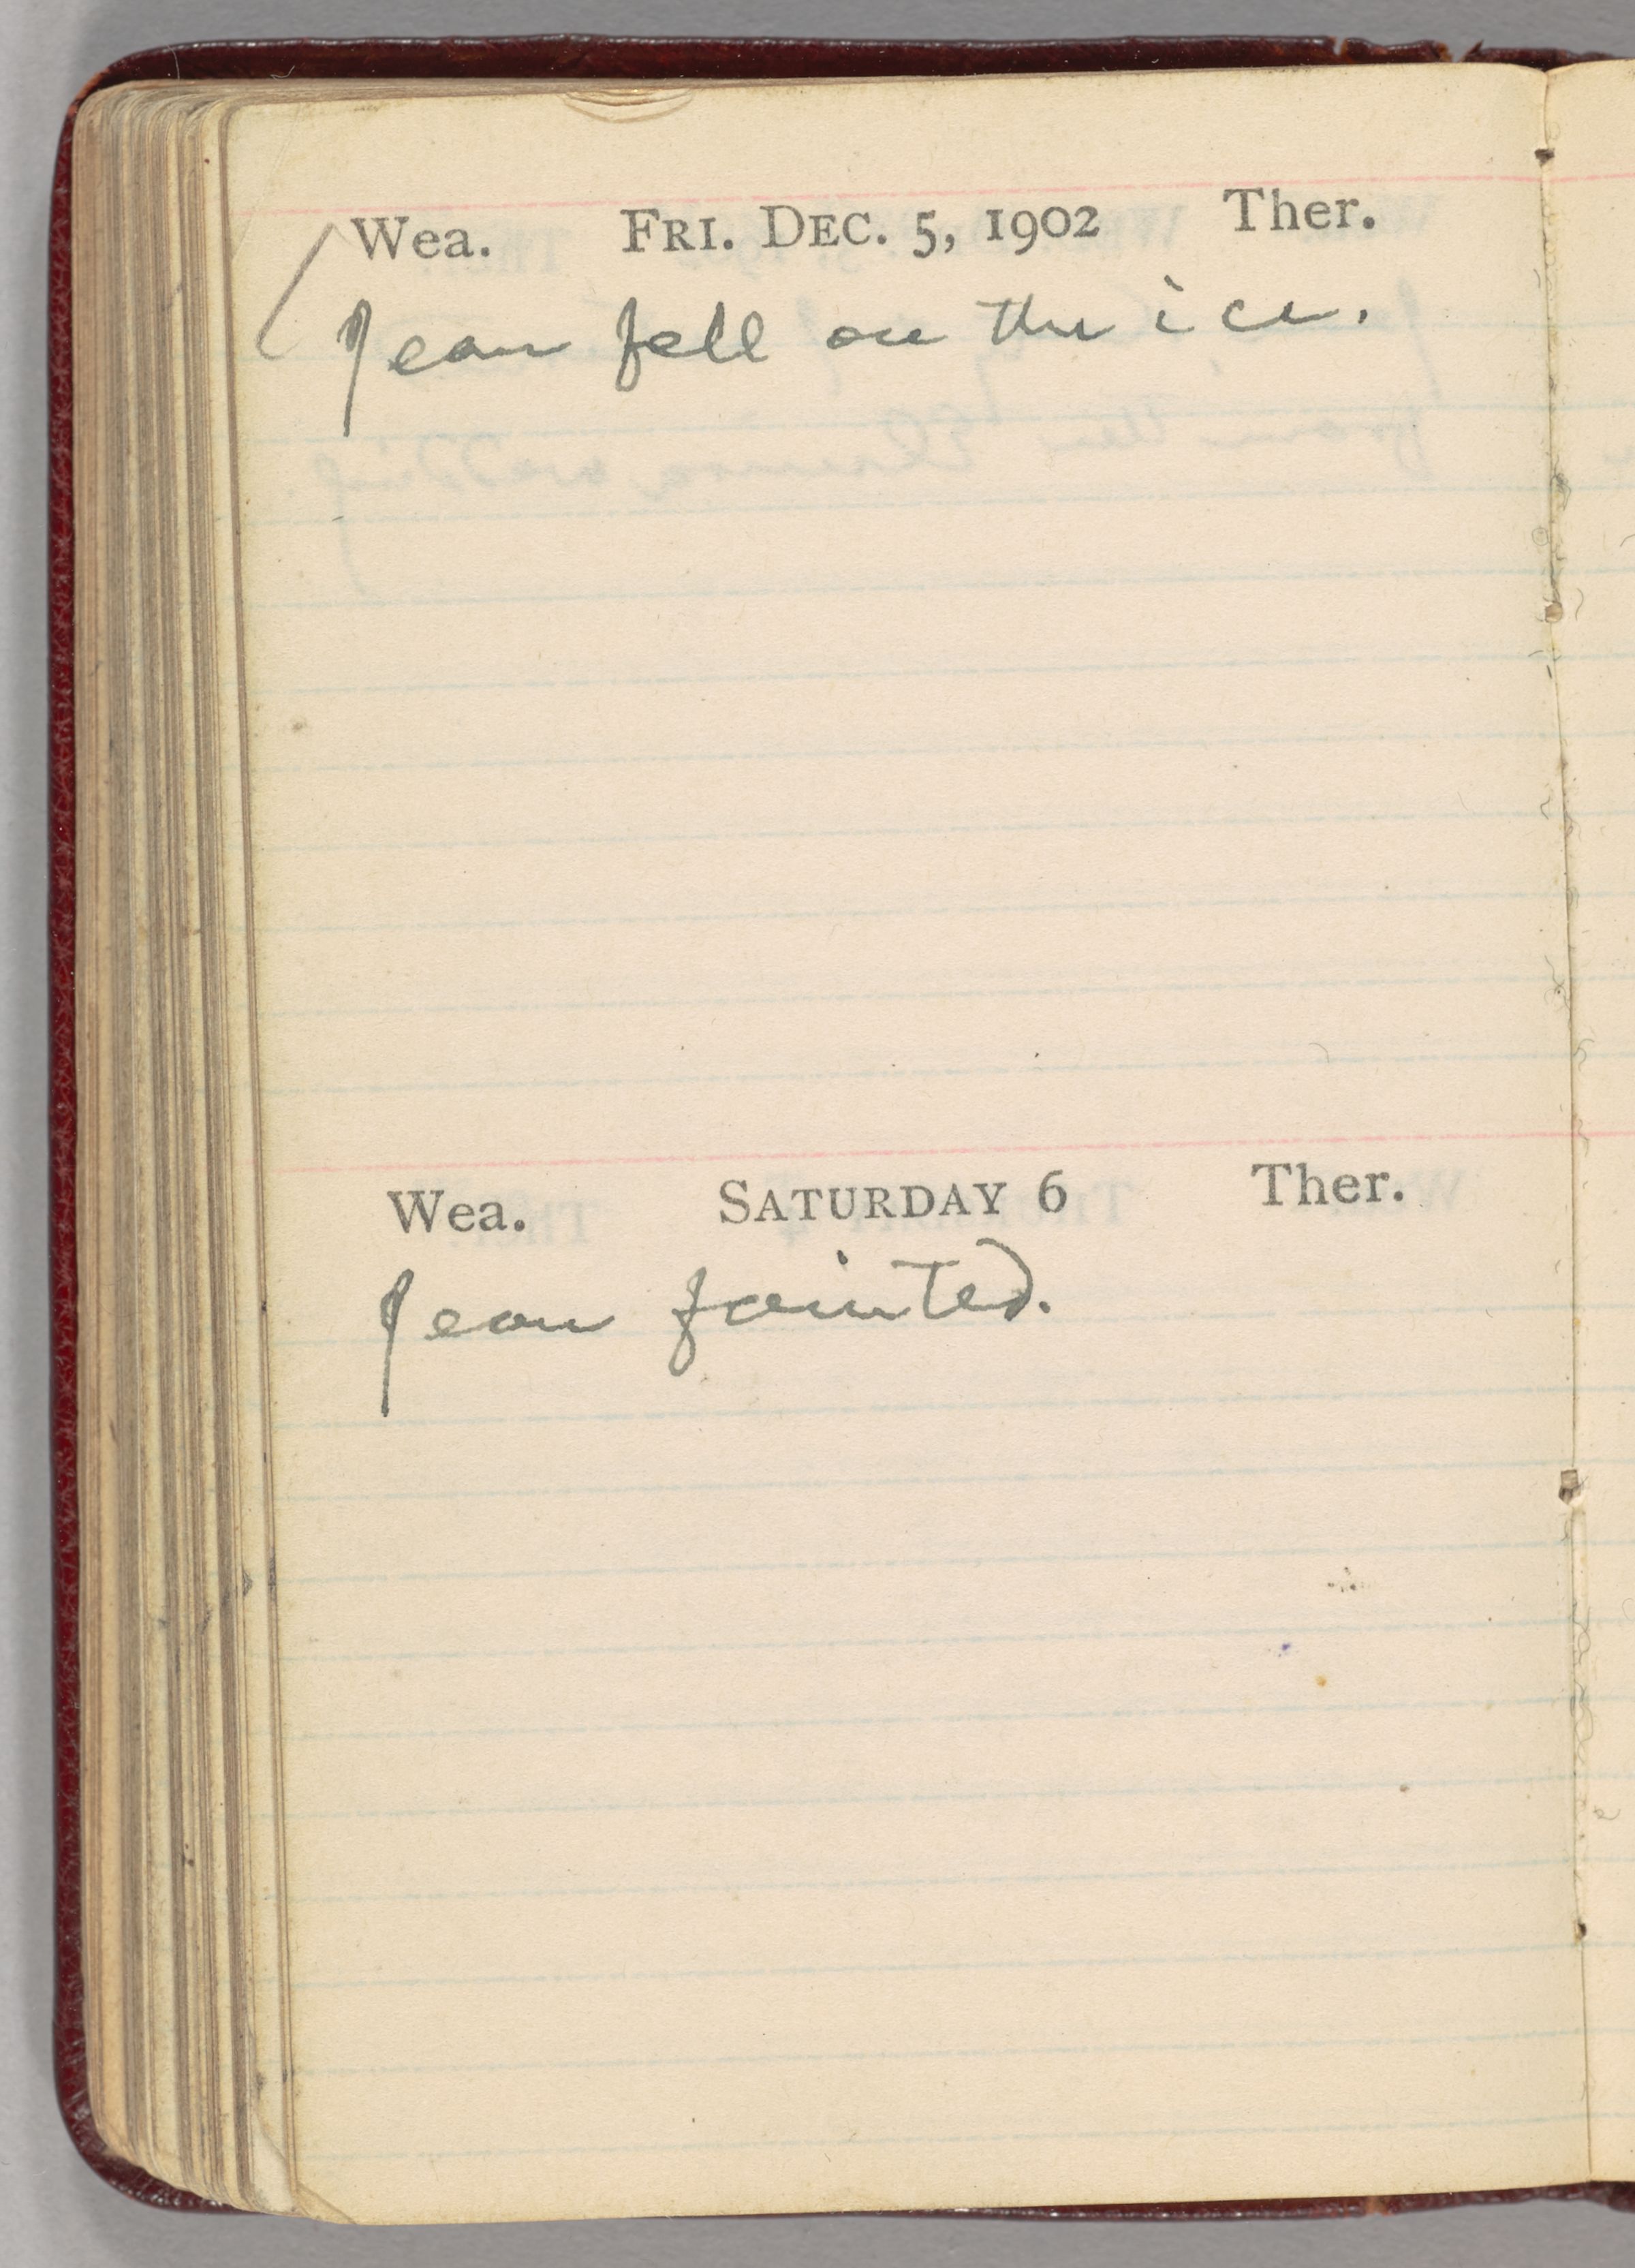 Wea. FRI. DEC. 5, 1902 Ther.
Jean fell on the ice.
Wea. SATURDAY 6 Ther.
Jean fainted.